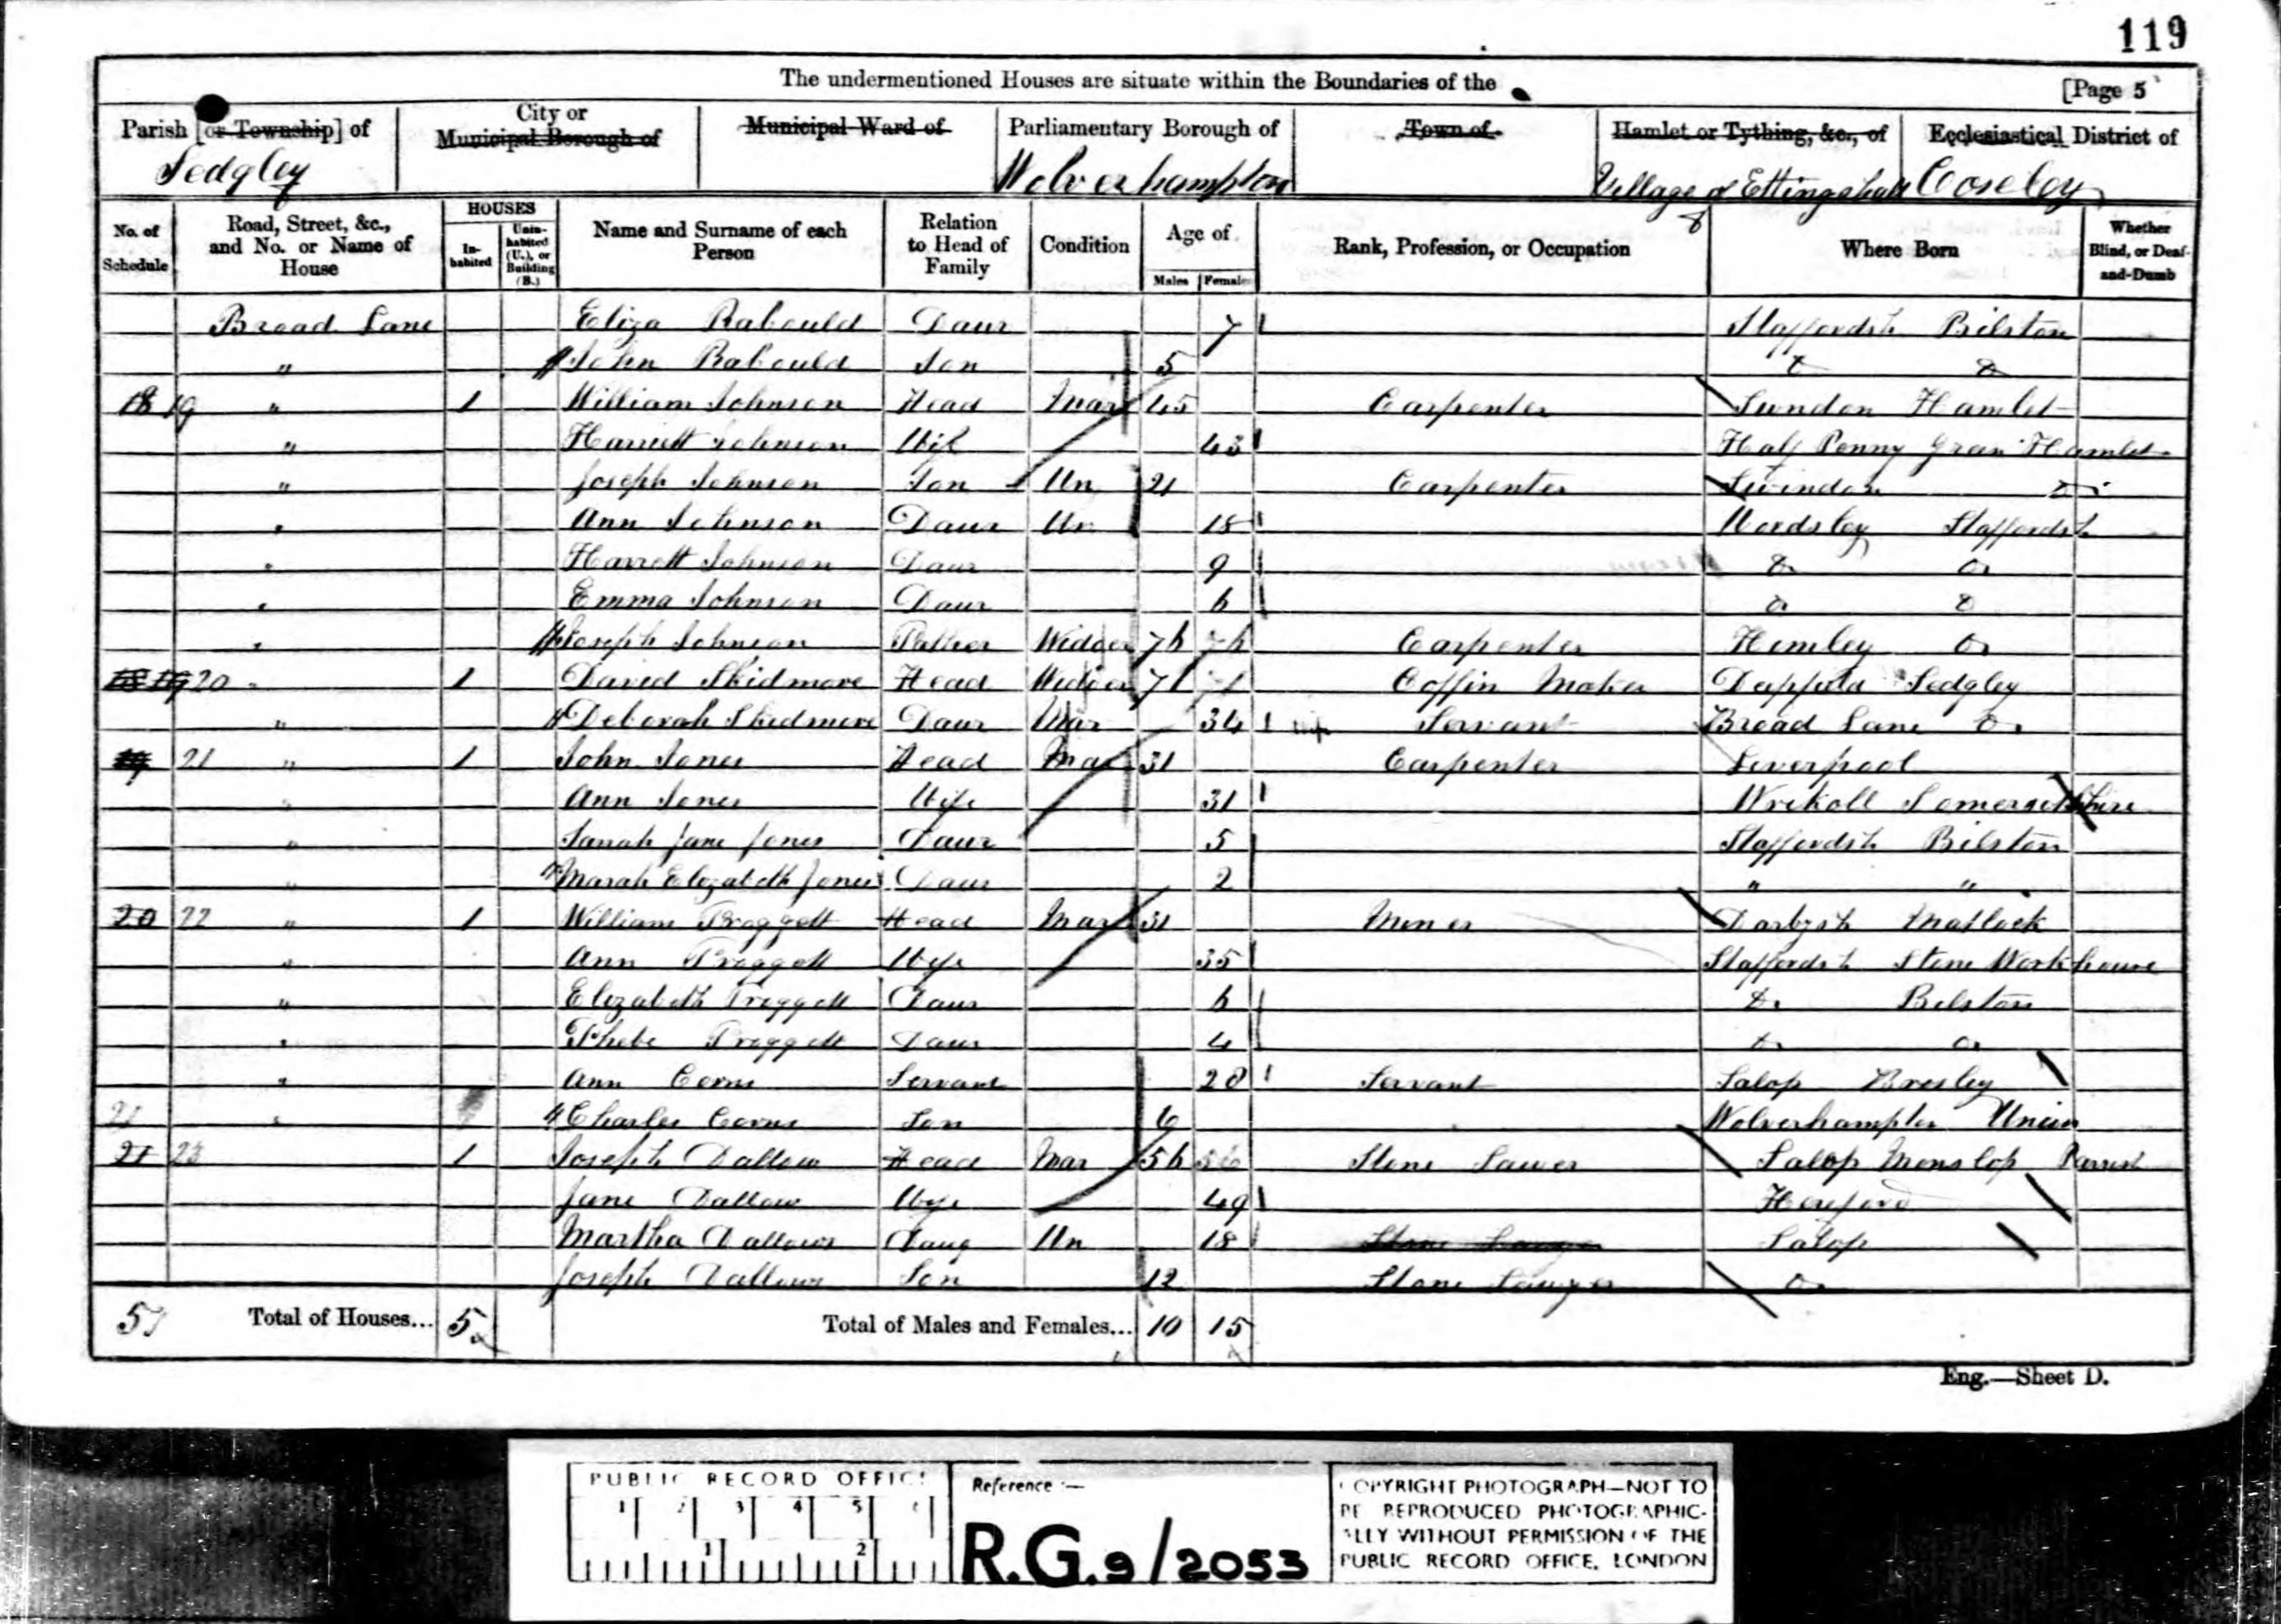 119
The undermentioned Houses are situate within the Boundaries of the [Page 5
Parish [or Township] of City or Municipal Borough of Municipal Ward of Parliamentary Borough of Town of Hamlet or Tything, &c., of Ecclesiastical District of
Sedgley Wolverhampton Village of Ettingshall Coseley
No. of Schedule Road, Street, &c., and No. or Name of House HOUSES Inhabited Uninhabited (U.), or Building (B.) Name and Surname of each Person Relation to Head of Family Condition Age of Males Females Rank, Profession, or Occupation Where Born Whether Blind, or Deaf-and-Dumb
Broad Lane Eliza Rabould Daur 7 Staffordsh Bilston
" John Rabould Son 5 Do Do
18 19 " 1 William Johnson Head Mar 45 Carpenter Swndon Hamlet
" Harriett Johnson Wife 43 Half Penny Green Hamlet
" Joseph Johnson Son Un 21 Carpenter Swindon Do
" Ann Johnson Daur Un 18 Wordsley Staffordsh
" Harrett Johnson Daur 9 Do Do
" Emma Johnson Daur 6 Do Do
" Joseph Johnson Father Widoer 76 76 Carpenter Himley Do
18 19 20 " 1 David Skidmore Head Widoer 71 71 Coffin Maker Sedgley
" Deborah Skidmore Daur Mar 34 Servant Broad Lane Do
19 21 " 1 John Jones Head Mar 31 Carpenter Liverpool
" Ann Jones Wife 31 Somersetshire
" Sarah Jane Jones Daur 5 Staffordsh Bilston
" Marah Elizabeth Jones Daur 2 " "
20 22 " 1 William Proggett Head Mar 31 Miner Darbysh Matlock
" Ann Proggett Wife 35 Staffordsh Stone Workhouse
" Elizabeth Proggett Daur 6 Do Bilston
" Phebe Proggett Daur 4 Do Do
" Ann Corns Servant 28 Servant Salop
21 " Charles Corns Son 6 Wolverhampton Union
21 23 1 Joseph Dallow Head Mar 56 56 Stone Sawer Salop Monslop
Jane Dallow Wife 49 Hereford
Martha Dallows Daug Un 18 Stone Sawyer Salop
Joseph Dallows Son 12 Stone Sawyer Do
5 Total of Houses... 5 Total of Males and Females... 10 15
Eng.—Sheet D.
PUBLIC RECORD OFFICE
1 2 3 4 5 6
1 2
Reference :—
R.G.9/2053
COPYRIGHT PHOTOGRAPH—NOT TO
BE REPRODUCED PHOTOGRAPHIC-
ALLY WITHOUT PERMISSION OF THE
PUBLIC RECORD OFFICE, LONDON